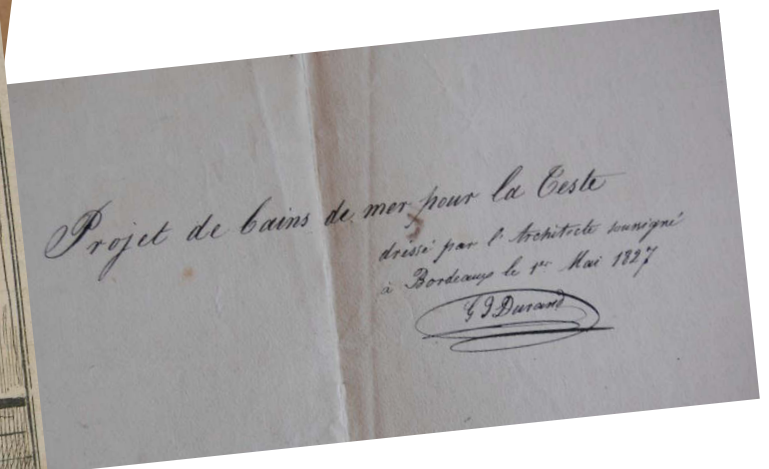 Projet de bains de mer pour la Teste
dressé par l'Architecte sousigné
à Bordeaux le 1er Mai 1827
G J Durand